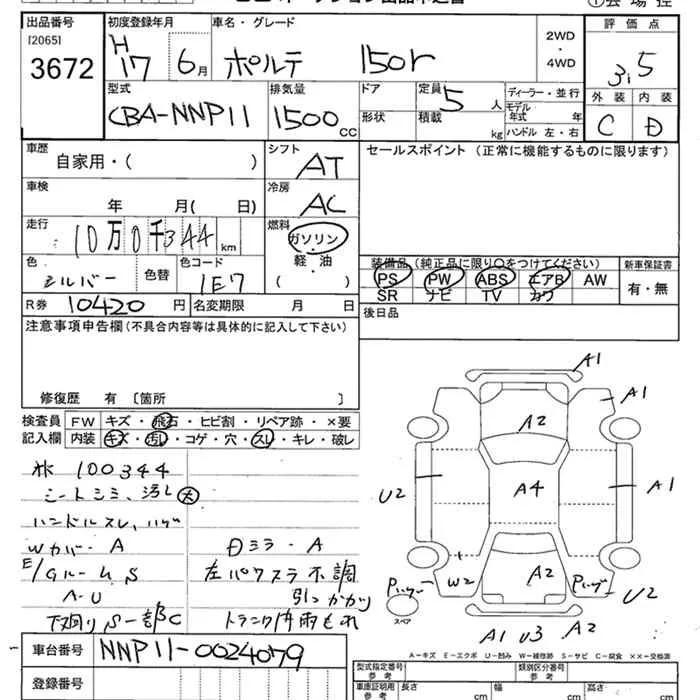 出品番号 初度登録年月 車名・グレード 評価点
[2065] H 2WD
3672 17 6月 ポルテ 150r ・ 3.5
4WD
型式 排気量 ドア 定員 ディーラー・並行 外装 内装
CBA-NNP11 1500CC 5人 モデル年式 年 C D
形状 積載 kg ハンドル 左・右
車歴 シフト セールスポイント (正常に機能するものに限ります)
自家用・( ) AT
車検 冷房
年 月( 日) AC
走行 燃料
10万0千344km ガソリン
色 色替 色コード 軽・油 装備品 (純正品に限り○をつけてください) 新車保証書
シルバー 1E7 ( ) PS PW ABS エアB AW 有・無
R券 10420円 名変期限 月 日 SR ナビ TV カワ
注意事項申告欄(不具合内容等は具体的に記入して下さい) 後日品
修復歴 有 〔箇所 〕
検査員 FW キズ・飛石・ヒビ割・リペア跡・×要
記入欄 内装 キズ・汚レ・コゲ・穴・スレ・キレ・破レ
100344
シートシミ、汚レ大
ハンドルスレ、ハゲ
Wカバー・A Dミラ・A
E/GルームS 左パワスラ不調
A・U 引っかかり
下廻りS一部C トランク内雨もれ
A1
A1
A2
U2 A4 A1
W2 A2 U2
スペア
A1 U3 A2
A-キズ E-エクボ U-凹み W-補修跡 S-サビ C-腐食 ××-交換済
車台番号 NNP11-0024079
型式指定番号 類別区分番号
登録番号
車庫証明用参考 長さ cm 幅 cm 高さ cm